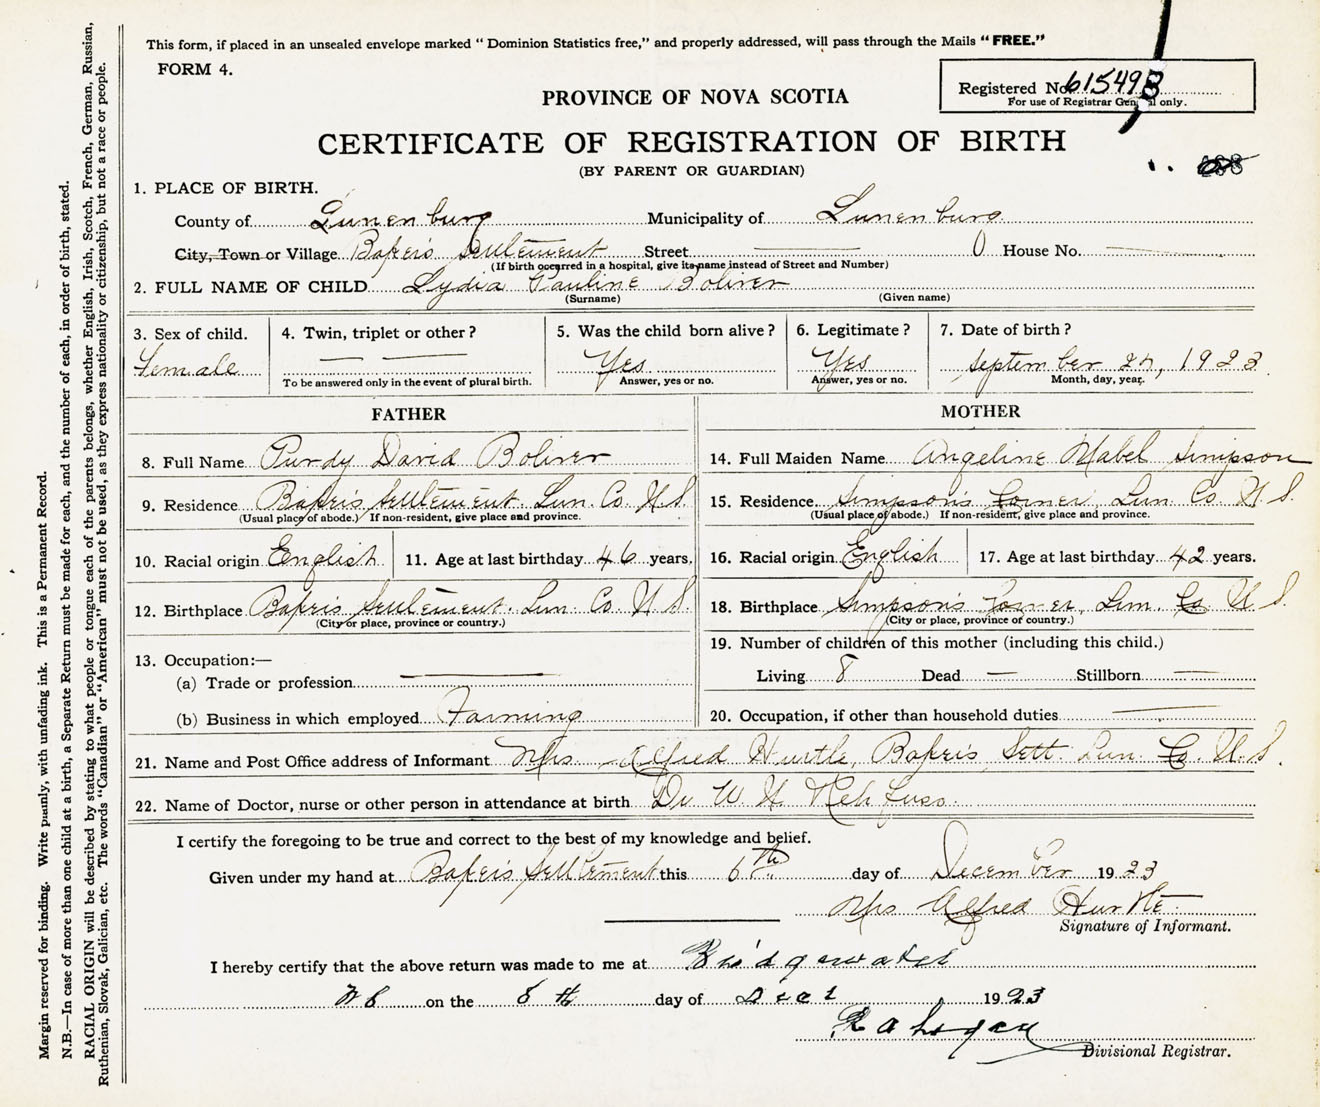 This form, if placed in an unsealed envelope marked “ Dominion Statistics free,” and properly addressed, will pass through the Mails “ FREE.”
FORM 4.
Registered No. 61549B
For use of Registrar General only.
PROVINCE OF NOVA SCOTIA
CERTIFICATE OF REGISTRATION OF BIRTH
(BY PARENT OR GUARDIAN)
1. PLACE OF BIRTH.
County of Lunenburg Municipality of Lunenburg
City, Town or Village Baker's Settlement Street House No.
(If birth occurred in a hospital, give its name instead of Street and Number)
2. FULL NAME OF CHILD Lydia Pauline Boliver
(Surname) (Given name)
3. Sex of child. 4. Twin, triplet or other ? 5. Was the child born alive ? 6. Legitimate ? 7. Date of birth ?
Female — — Yes Yes September 27, 1923
To be answered only in the event of plural birth. Answer, yes or no. Answer, yes or no. Month, day, year.
FATHER MOTHER
8. Full Name Purdy David Boliver 14. Full Maiden Name Angeline Mabel Simpson
9. Residence Baker's Settlement. Lun. Co. N.S. 15. Residence Simpson's Corner, Lun. Co N S.
(Usual place of abode.) If non-resident, give place and province. (Usual place of abode.) If non-resident, give place and province.
10. Racial origin English 11. Age at last birthday 46 years. 16. Racial origin English 17. Age at last birthday 42 years.
12. Birthplace Baker's Settlement. Lun Co N S. 18. Birthplace Simpson's Corner, Lun. Co N S.
(City or place, province or country.) (City or place, province or country.)
19. Number of children of this mother (including this child.)
13. Occupation:—
Living 8 Dead — Stillborn —
(a) Trade or profession —
(b) Business in which employed Farming
20. Occupation, if other than household duties —
21. Name and Post Office address of Informant Mrs. Alfred Hurtle, Baker's Sett. Lun. Co. N.S.
22. Name of Doctor, nurse or other person in attendance at birth Dr W. H Rehfuss.
I certify the foregoing to be true and correct to the best of my knowledge and belief.
Given under my hand at Baker's Settlement this 6th day of December 1923
Mrs Alfred Hurtle
Signature of Informant.
I hereby certify that the above return was made to me at Bridgewater
NS on the 8th day of Dec 1923
Divisional Registrar.
Margin reserved for binding. Write plainly, with unfading ink. This is a Permanent Record.
N.B.—In case of more than one child at a birth, a Separate Return must be made for each, and the number of each, in order of birth, stated.
RACIAL ORIGIN will be described by stating to what people or tongue each of the parents belongs, whether English, Irish, Scotch, French, German, Russian,
Ruthenian, Slovak, Galician, etc. The words “Canadian” or “American” must not be used, as they express nationality or citizenship, but not a race or people.